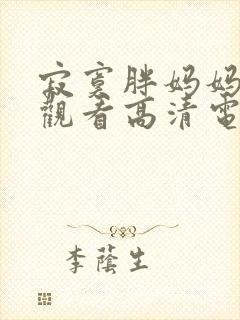 寂寞胖妈妈
觀看高清電
李蔭生